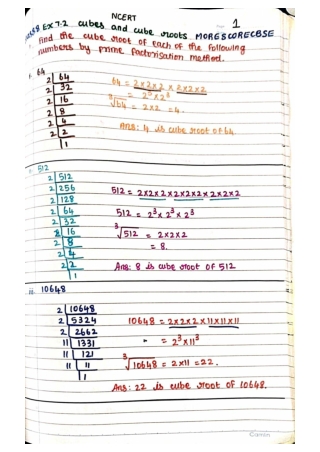 NCERT
1
Ex 7.2 cubes and cube roots MORESCORECBSE
Find the cube root of each of the following
numbers by prime factorisation method.
i. 64
2 | 64
2 | 32
2 | 16
2 | 8
2 | 4
2 | 2
1
64 = 2×2×2 × 2×2×2
= 2³×2³
³√64 = 2×2 = 4.
Ans: 4 is cube root of 64.
ii. 512
2 | 512
2 | 256
2 | 128
2 | 64
2 | 32
2 | 16
2 | 8
2 | 4
2 | 2
1
512 = 2×2×2 × 2×2×2 × 2×2×2
512 = 2³ × 2³ × 2³
³√512 = 2×2×2
= 8.
Ans: 8 is cube root of 512
10648
2 | 10648
2 | 5324
2 | 2662
11 | 1331
11 | 121
11 | 11
1
10648 = 2×2×2 × 11×11×11
" = 2³×11³
³√10648 = 2×11 = 22.
Ans: 22 is cube root of 10648.